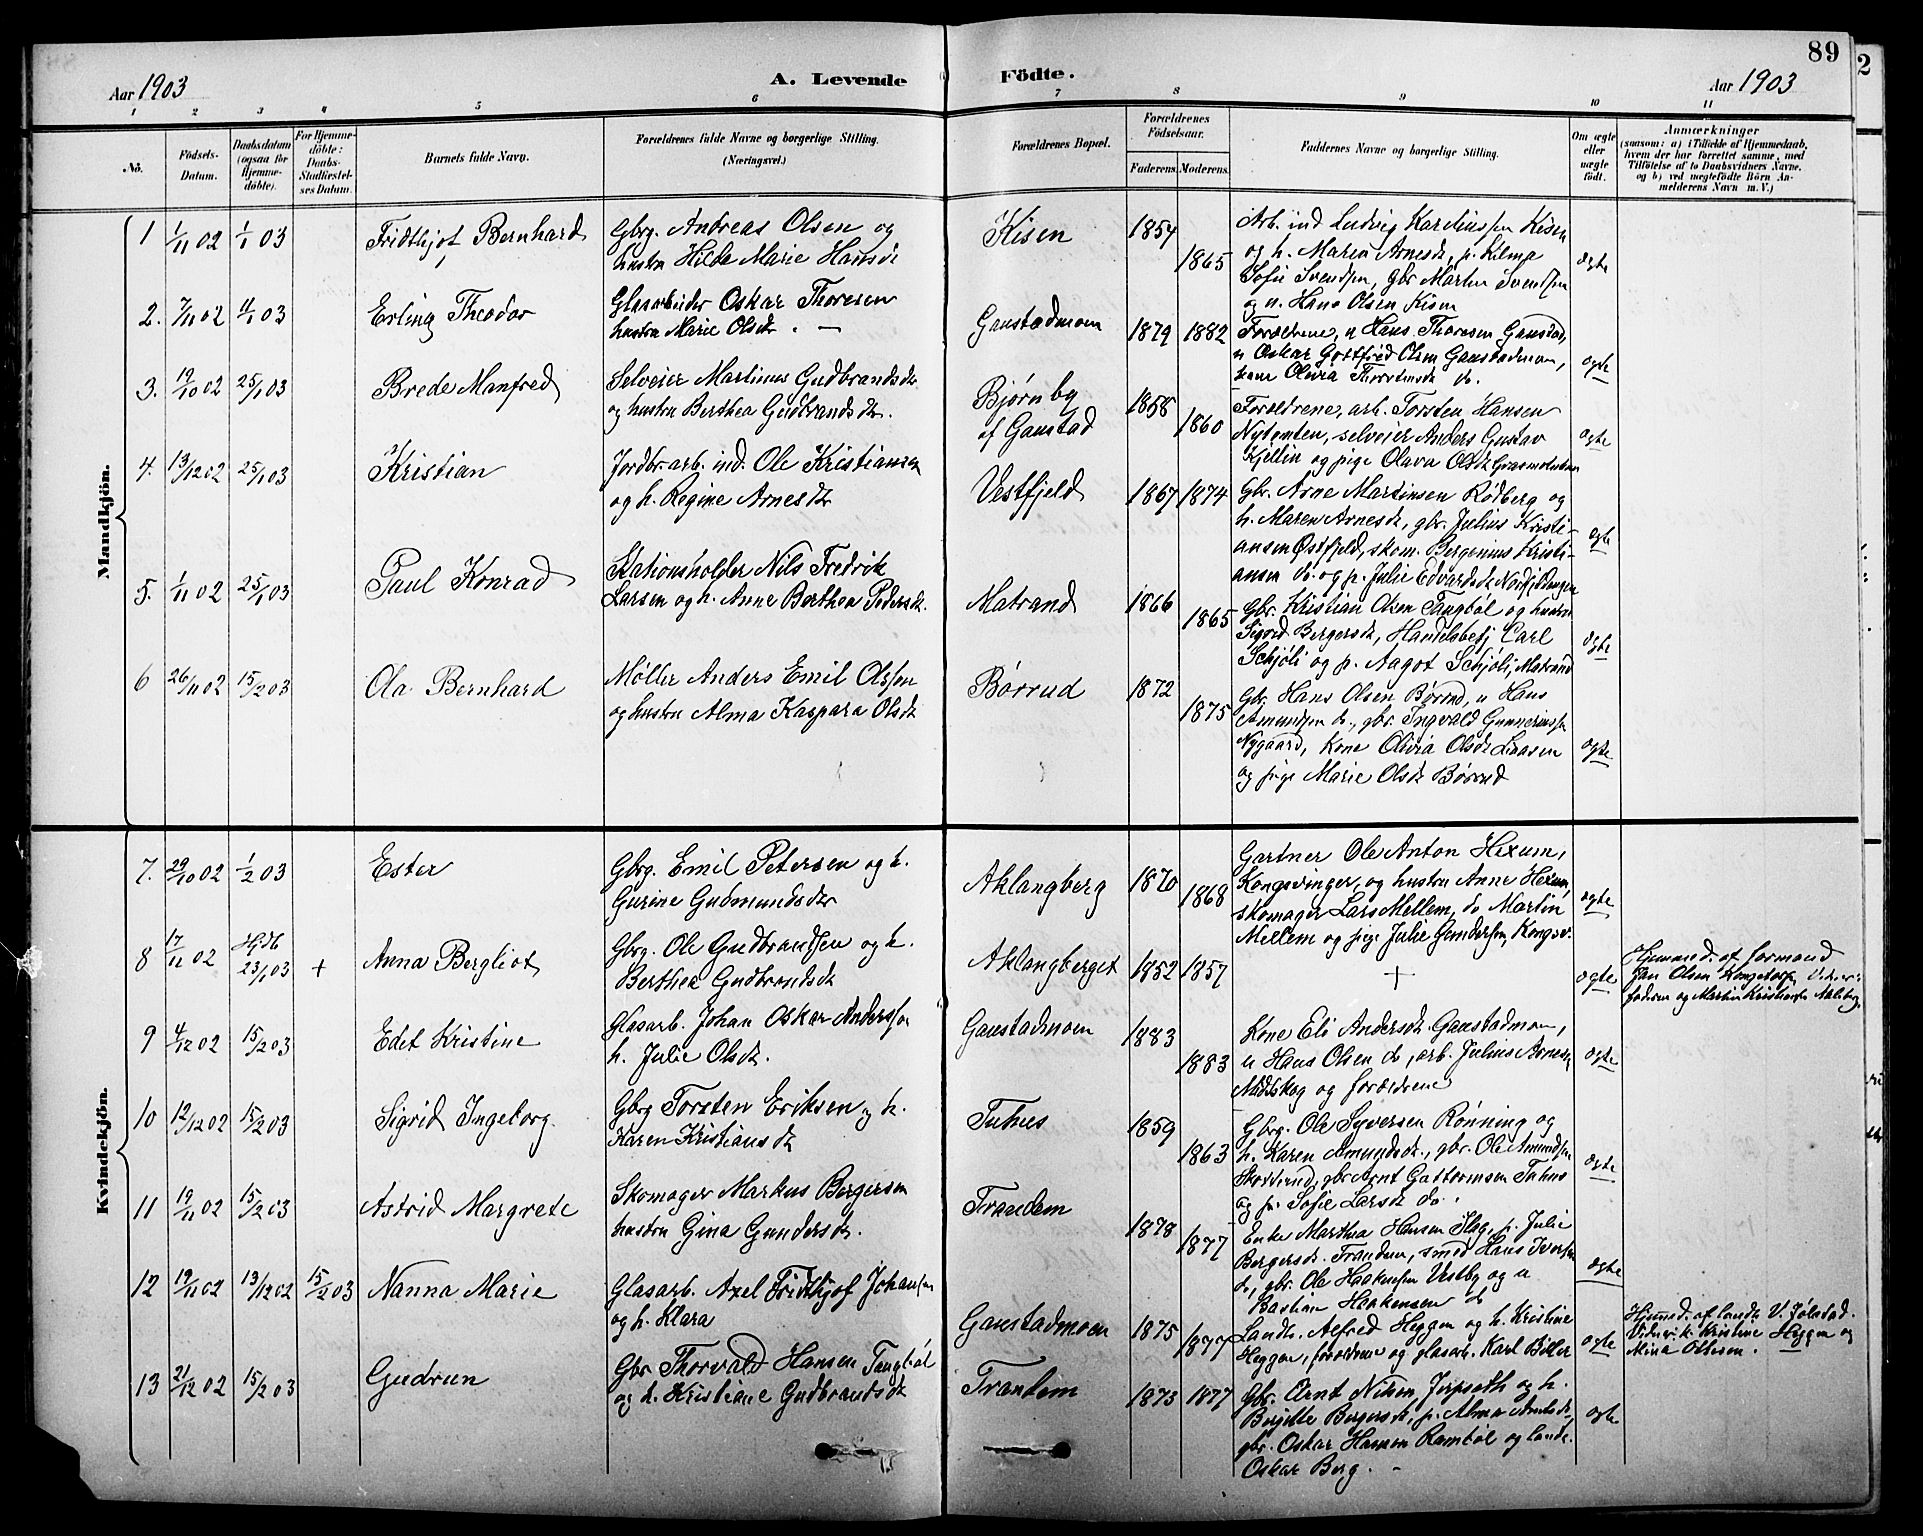 89
Aar 1903
A. Levende Födte.
Aar 1903
1 2 3 4 5 6 7 8 9 10 11
No.
Födsels-Datum.
Daabsdatum (ogsaa for Hjemme-döbte).
For Hjemme-döbte: Daabs-Stadfæstel-ses Datum.
Barnets fulde Navn.
Forældrenes fulde Navne og borgerlige Stilling.
(Næringsvei.)
Forældrenes Bopæl.
Forældrenes Födselsaar.
Faderens. Moderens.
Faddernes Navne og borgerlige Stilling.
Om ægte eller uægte født.
Anmærkninger
(saasom: a) i Tilfælde af Hjemmedaab,
hvem der har forrettet samme, med
Tilföielse af to Daabsvidners Navne.
og b) ved uægtefödte Börn An-
melderens Navn m. V.)
Mandkjön.
1 1/11 02 1/1 03 Fridthjof Bernhard
Gbrg. Andreas Olsen og
hustru Hilda Marie Hansd
Kisen 1854 1865
Arb. ind Ludvig Kareliussen Kisen
og h. Maren Arnesd, p. Hilma
Sofie Svendsen, gbr Martin Svendsen
og u. Hans Olsen Kisen
ægte
2. 7/11 02 4/1 03 Erling Theodor
Glasarbeider Oskar Thoresen
hustru Marie Olsdr. —
Gaustadmoen 1879 1882
Forældrene, u Hans Thoresen Gaustad,
u Oskar Gottfried Olsen Gaustadmoen,
kone Olivia Thorstensdr do.
ægte
3. 19/10 02 25/1 03 Brede Manfred
Selveier Martinus Gudbrandsdr.
og hustru Berthea Gudbrandsdr.
Bjørnby
af Gaustad
1858 1860
Forældrene, arb. Torsten Hansen
Nytomten, selveier Anders Gustav
Kjellin og pige Olava Olsdr
ægte
4. 13/12 02 25/1 03 Kristian
Jordbr.arb. ind. Ole Kristiansen
og h. Regine Arnesdr
Vestfjeld 1867 1874
Gbr. Arne Martinsen Rødberg og
h. Maren Arnesdr, gbr. Julius Kristi-
ansen Østfjeld, skom. Bergenius Kristi-
ansen do. og p. Julie Edvardsdr
ægte
5. 1/11 02 25/1 03 Paul Konrad
Stationsholder Nils Fredrik
Larsen og h. Anne Berthea Pedersdr.
Matrand 1866 1865
Gbr. Kristian Olsen Tangbøl og hustru
Sigrid Bergersdr, Handelsbetj Carl
Schjøli og p. Aagot Schjøli, Matrand
ægte
6 26/11 02 15/2 03 Ola Bernhard
Møller Anders Emil Olssen
og hustru Alma Kaspara Olsdr
Børrud 1872 1875
Gbr. Hans Olsen Børrud, u Hans
Amundsen do., gbr. Ingvald Gunneriussen
Nygaard, kone Olivia Olsdr Laasen
og pige Marie Olsdr Børrud
ægte
Kvindekjön.
7. 29/10 02 1/2 03 Ester
Gbrg. Emil Petersen og h.
Gurine Gudmundsdr
Aklangberg 1870 1868
Gartner Ole Anton Hexum,
Kongsvinger, og hustru Anne Hexum,
skomager Lars Mellem, do Martin
Mellem og pige Julie Gundersen, Kongsv.
ægte
8 17/11 02 Hjdb 23/1 03 + Anna Bergliot
Gbrg. Ole Gudbrandsen og h.
Berthea Gudbrandsdr
Aklangberget 1852 1857
+
ægte
Hjemmed. af formand
Jan Olsen
faderen og Martin Kristiansen
9 4/12 02 15/2 03 Edet Kristine
Glasarb. Johan Oskar Anderssen
h. Julie Olsdr.
Gaustadmoen 1883 1883
Kone Eli Andersdr Gaustadmoen,
u Hans Olsen do, arb. Julius Arnesen
Mådskog og forældrene
ægte
10 12/12 02 15/2 03 Sigrid Ingeborg.
Gbrg Torsten Eriksen og h.
Karen Kristiansdr
Tuhus 1859 1863
Gbrg. Ole Syversen Rønning og
h. Karen Amundsdr., gbr. Ole Amundsen
Skotterud, gbr Arnt Guttormsen Tuhus
og p. Sofie Larsdr do.
ægte
11 19/11 02 15/2 03 Astrid Margrete
Skomager Markus Bergersen
hustru Gina Gundersdr.
Trandem 1878 1877
Enke Marthea Hansen Hag, p. Julie
Bergersdr. Trandem, smed Hans Iversen
do, gbr. Ole Haakensen Vestby og u
Bastian Haakensen do
ægte
12 19/11 02 13/12 02 15/2 03 Nanna Marie
Glasarb. Axel Fridthjof Johansen
og h. Klara
Gaustadmoen 1875 1877
Landh. Alfred Heggen og h. Kristine
Heggen, forældrene og glasarb. Karl Bitter
ægte
Hjemmed. af landh. V. Jølstad.
Vidner: k. Kristine Heggen og
Mina Ottesen.
13 21/12 02 15/2 03 Gudrun
Gbr Thorvald Hansen Tangbøl
og h. Kristiane Gudbrandsdr
Trandem 1873 1877
Gbr. Arnt Nilsen Jerpseth og h.
Bergitte Bergersdr, p. Alma Arntsdr,
gbr. Oskar Hansen Rambøl og landh.
Oskar Berg. —
ægte